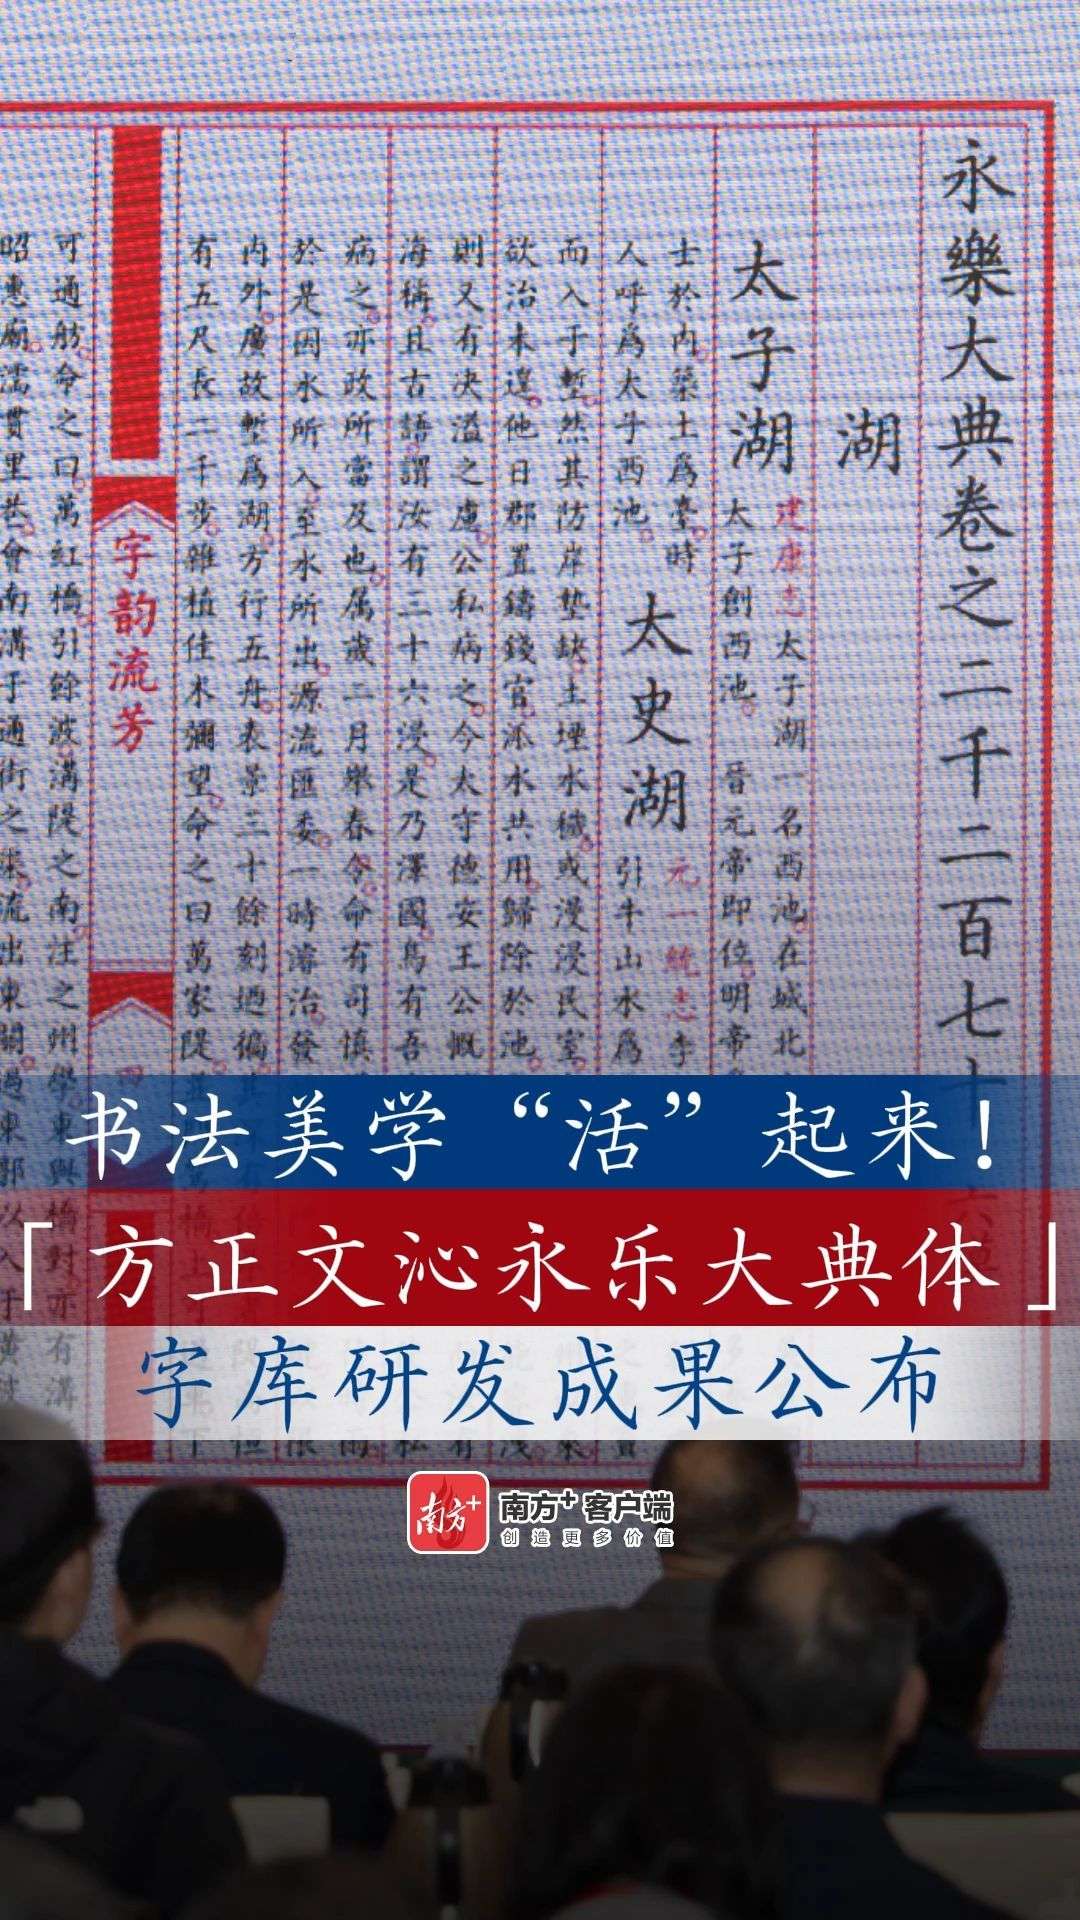 永樂大典卷之二千二百七十
湖
太子湖
建康志太子湖一名西池在城北
太子創西池。晉元帝即位。明帝
士於内築土爲臺。時
人呼爲太子西池。
太史湖
元一統志李
引牛山水爲
而入于塹。然其防岸墊缺。土堙水穢。或漫浸民室。
欲治未遑。他日郡置鑄錢官。添水共用。歸除於池。
則又有决溢之慮。公私病之。今太守德安王公慨
海稱。且古語謂汝有三十六浸。是乃澤國。烏有吾
病之。亦政所當及也。属歲二月舉春令。命有司慎
於是因水所入至水所出。源流匯委。一時濬治。發
内外。廣故塹爲湖。方行五舟。表景三十餘刻迺徧。其
有五尺。長二千步。雜植佳木彌望。命之曰萬家隄。
字韵流芳
可通舫。命之曰萬紅橋。引餘波溝隄之南。注之州學。東與橋對。亦有溝
昭惠廟。濡貫里巷。會南溝于通街之渠。流出東關。過東郭以入于黄
书法美学“活”起来！
「方正文沁永乐大典体」
字库研发成果公布
南方+
南方+客户端
创造更多价值